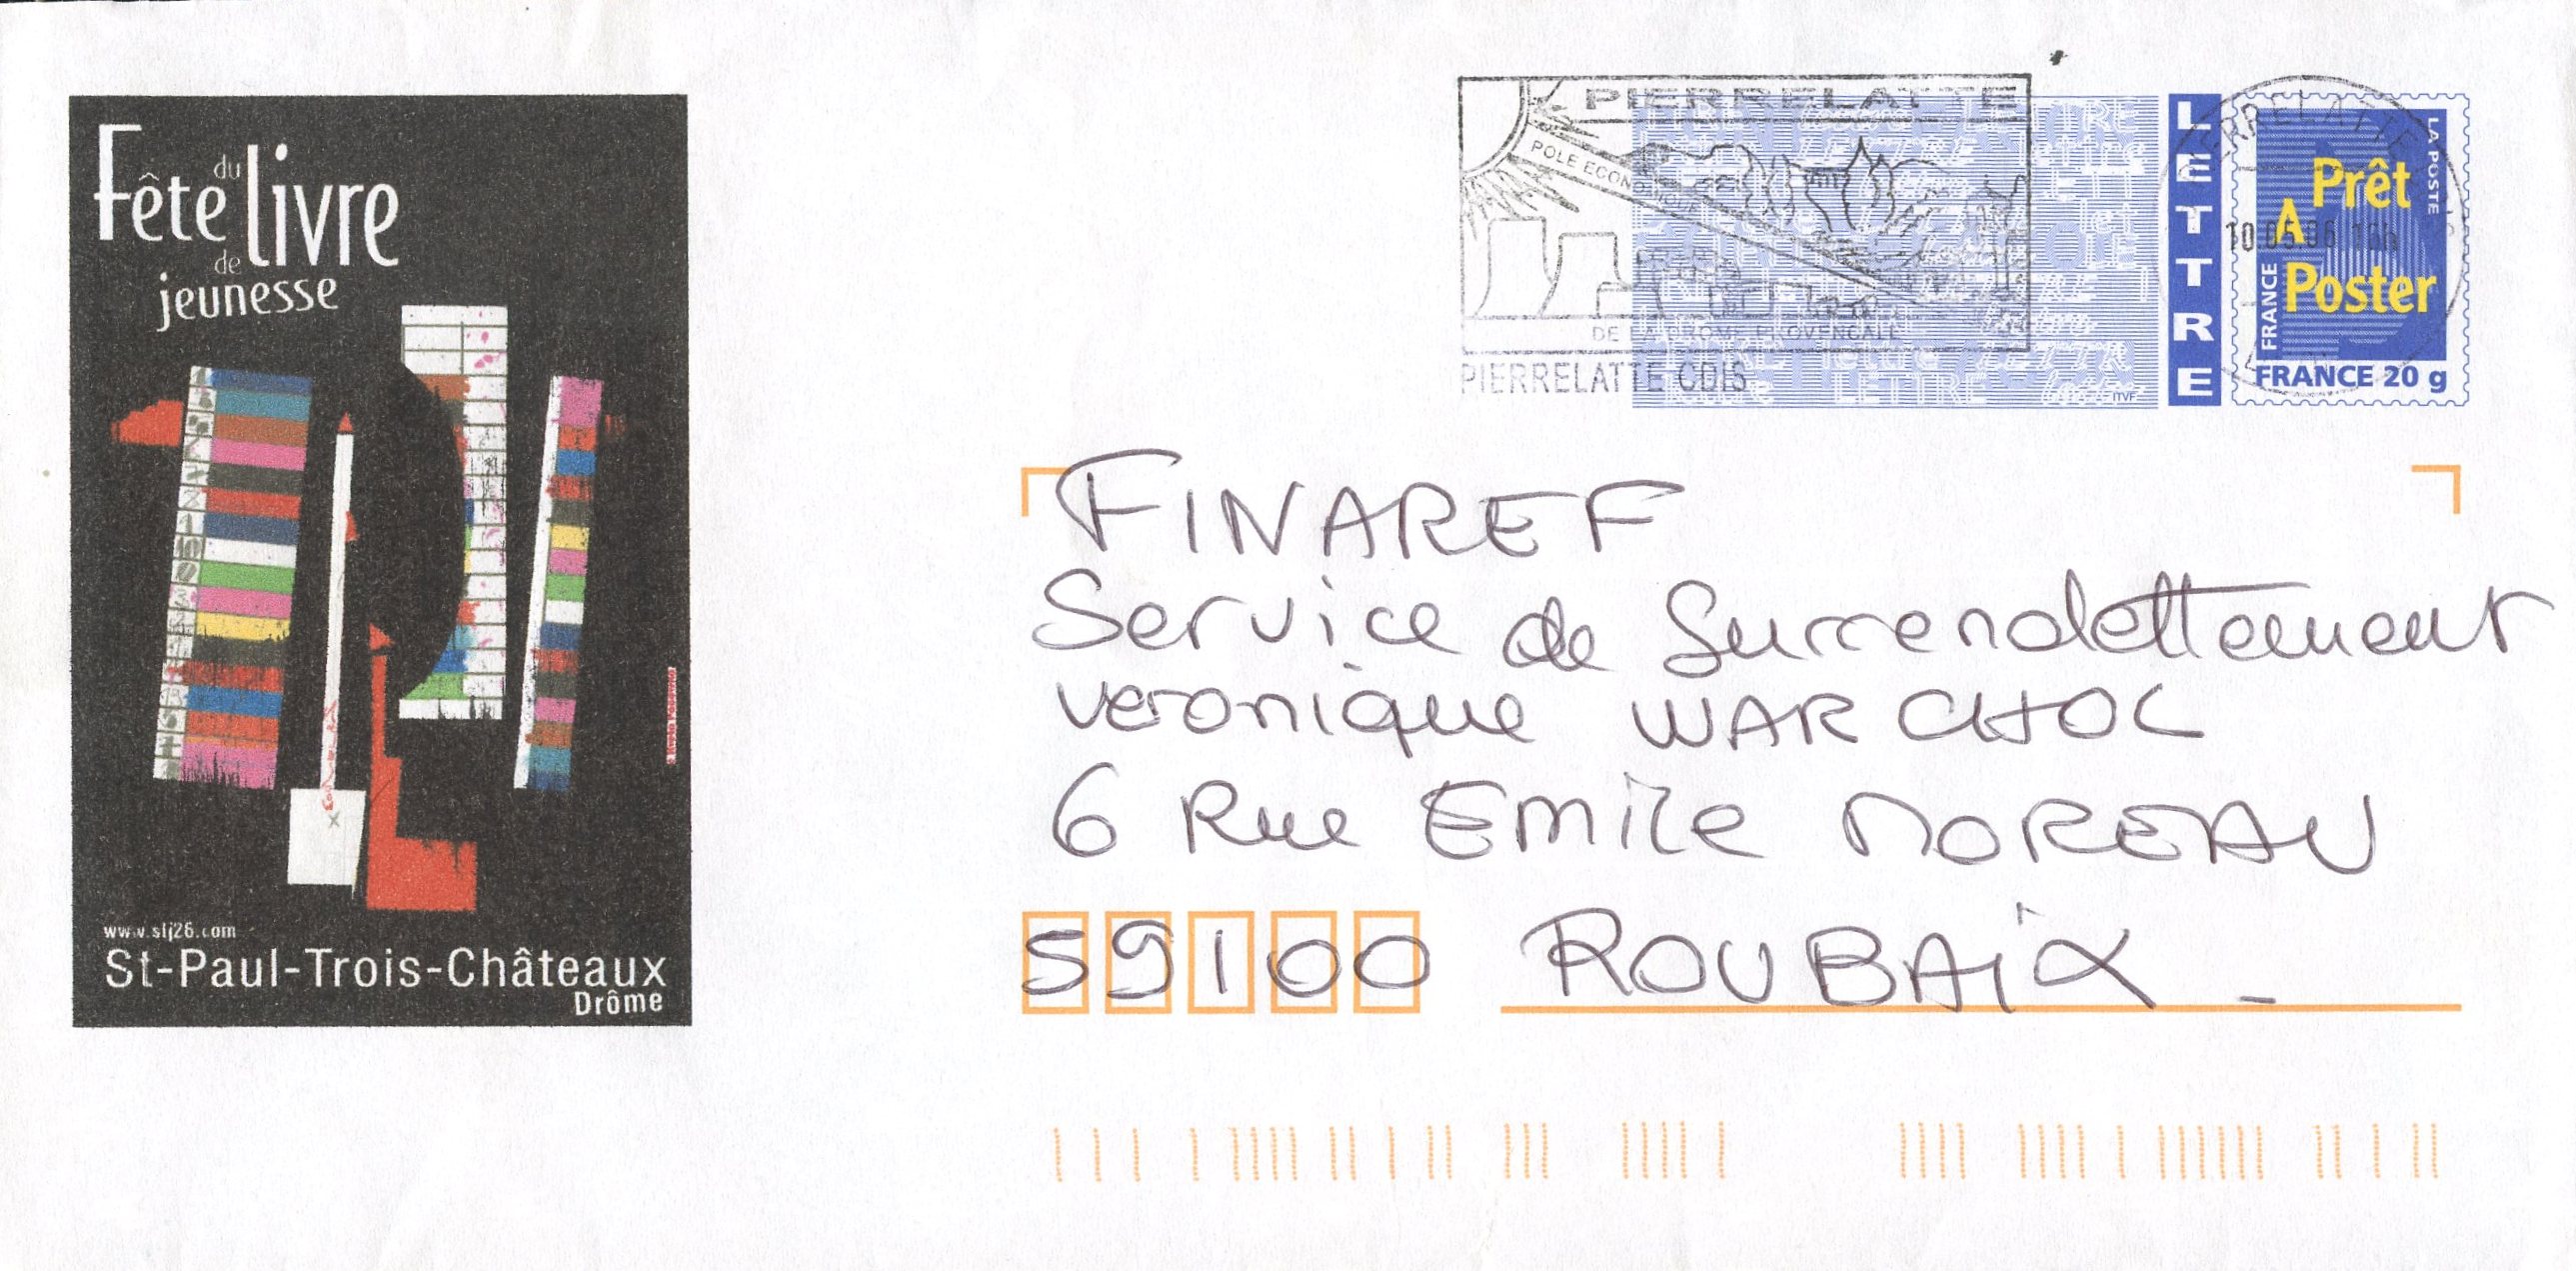 Fête du livre
de jeunesse
www.slj26.com
St-Paul-Trois-Châteaux
Drôme
PIERRELATTE
POLE ECONOMIQUE
DE LA DROME PROVENCALE
PIERRELATTE CDIS
LETTRE
PIERRELATTE
10.05.06 16h
LA POSTE
Prêt
A
Poster
FRANCE
FRANCE 20 g
ITVF
FINAREF
Service de Surrendettement
veronique WARCHOL
6 Rue Emile MOREAU
59100 ROUBAiX -